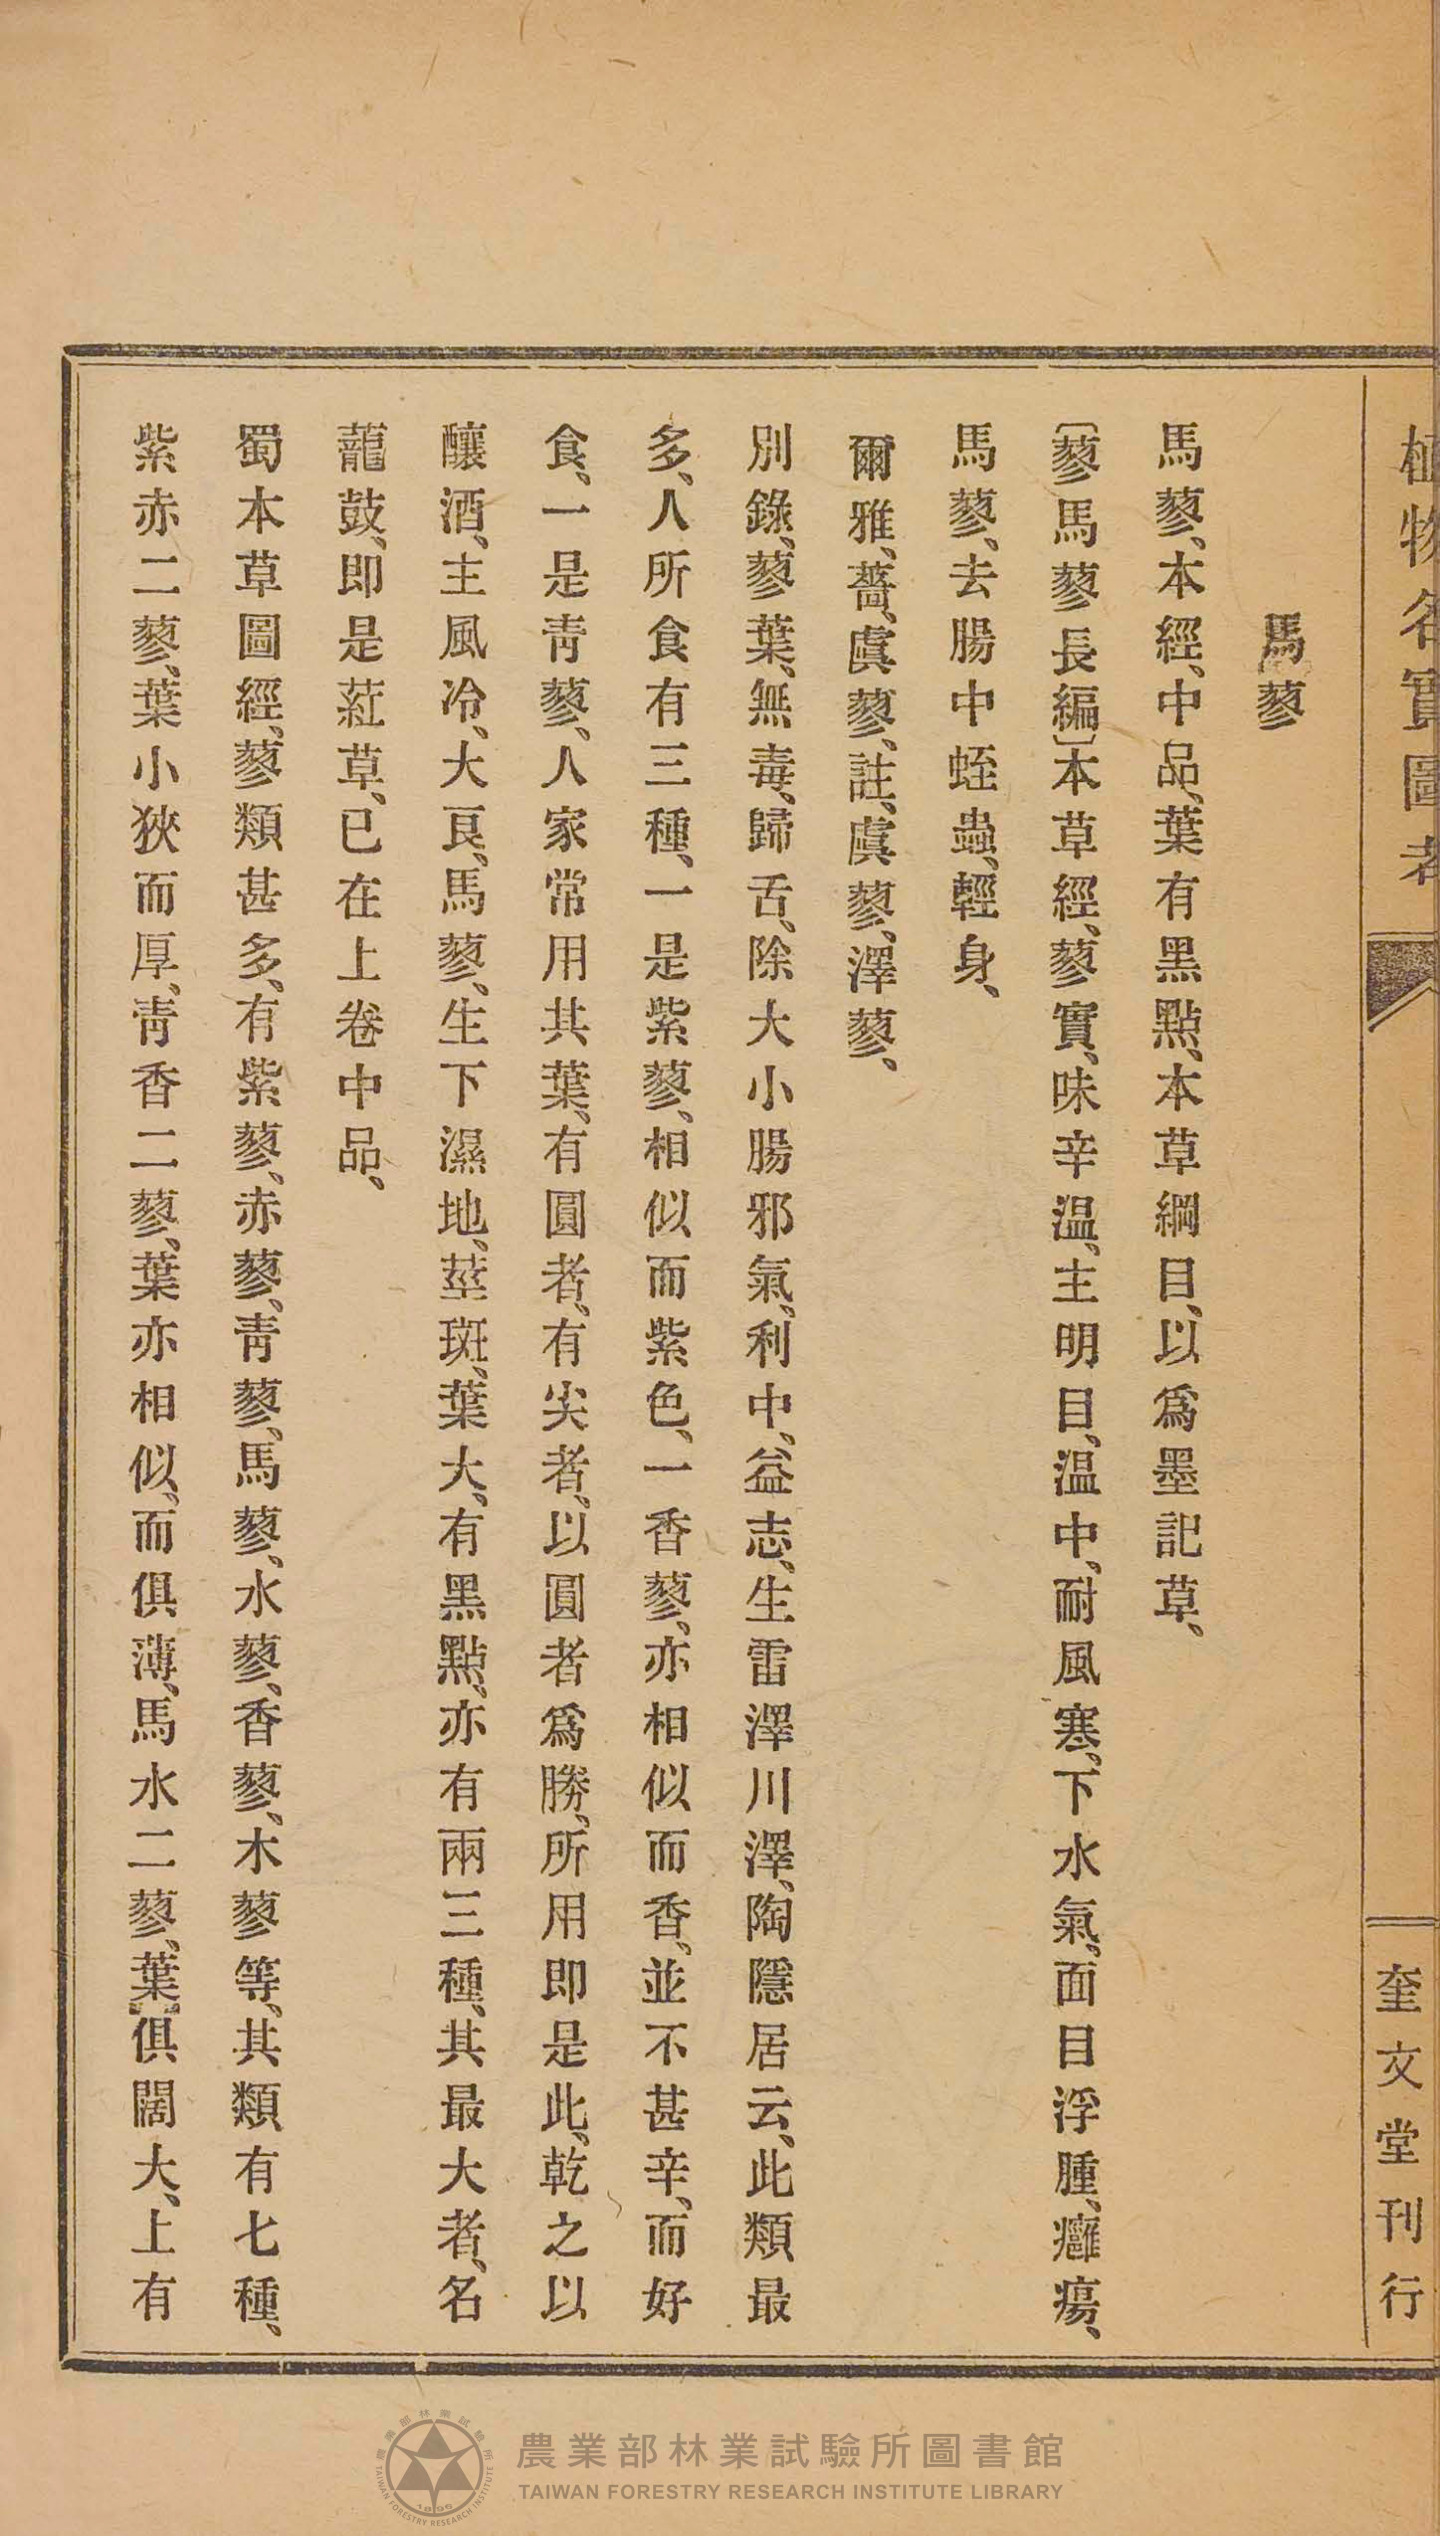 植物名實圖考
奎文堂刊行
馬蓼
馬蓼、本經、中品、葉有黑點、本草綱目、以爲墨記草、
〔蓼馬蓼長編〕本草經、蓼實、味辛溫、主明目、溫中、耐風寒、下水氣、面目浮腫、癰瘍、
馬蓼、去腸中蛭蟲、輕身、
爾雅、薔、虞蓼、註、虞蓼、澤蓼、
別錄、蓼葉、無毒、歸舌、除大小腸邪氣、利中、益志、生雷澤川澤、陶隱居云、此類最
多、人所食有三種、一是紫蓼、相似而紫色、一香蓼、亦相似而香、並不甚辛、而好
食、一是靑蓼、人家常用其葉、有圓者、有尖者、以圓者爲勝、所用即是此、乾之以
釀酒、主風冷、大良、馬蓼、生下濕地、莖斑、葉大、有黑點、亦有兩三種、其最大者、名
蘢鼓、即是葒草、已在上卷中品、
蜀本草圖經、蓼類甚多、有紫蓼、赤蓼、靑蓼、馬蓼、水蓼、香蓼、木蓼等、其類有七種、
紫赤二蓼、葉小狹而厚、靑香二蓼、葉亦相似、而俱薄、馬水二蓼、葉俱闊大、上有
農業部林業試驗所圖書館
TAIWAN FORESTRY RESEARCH INSTITUTE LIBRARY
農業部林業試驗所
TAIWAN FORESTRY RESEARCH INSTITUTE
1895